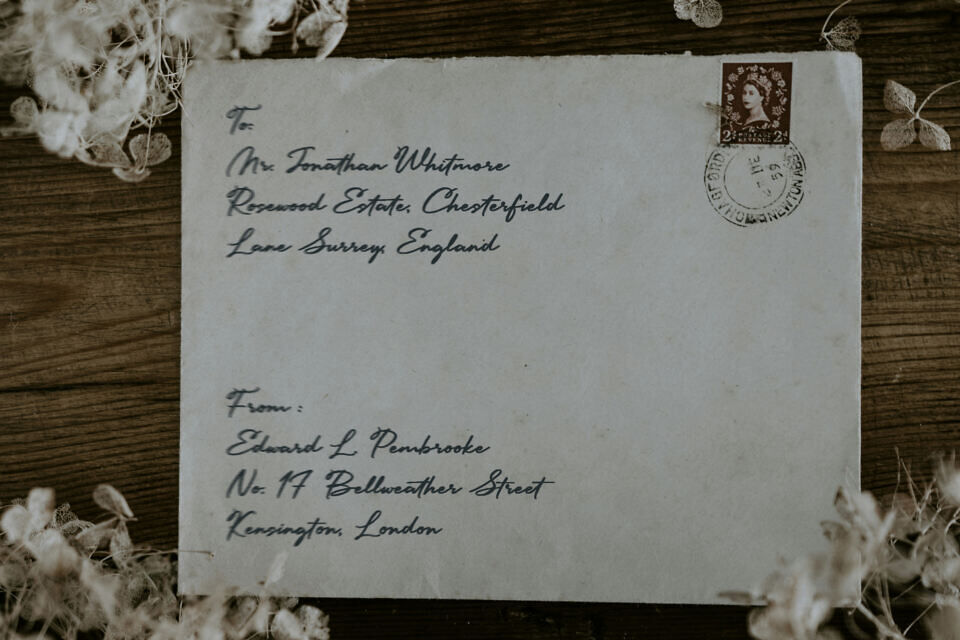 To:
Mr. Jonathan Whitmore
Rosewood Estate, Chesterfield
Lane Surrey, England
2d 2d
POSTAGE
REVENUE
59
NEWTON ABBOT
From :
Edward L. Pembrooke
No. 17 Bellweather Street
Kensington, London